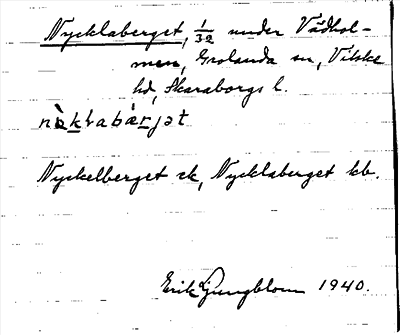 Nycklaberget, 1/32 under Vådhol-
men, Grolanda sn, Vilske
hd, Skaraborgs l.
Nyckelberget ek, Nycklaberget kb.
Erik Ljungblom 1940.